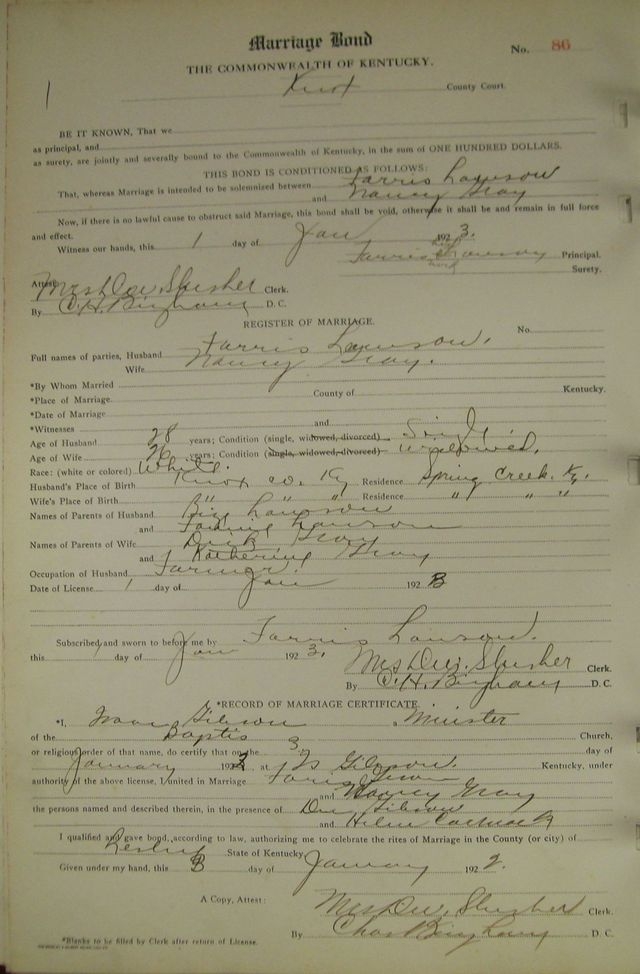 Marriage Bond
No. 86
THE COMMONWEALTH OF KENTUCKY.
Knox County Court.
BE IT KNOWN, That we
as principal, and
as surety, are jointly and severally bound to the Commonwealth of Kentucky, in the sum of ONE HUNDRED DOLLARS.
THIS BOND IS CONDITIONED AS FOLLOWS:
That, whereas Marriage is intended to be solemnized between Farris Lawson
and Nancy Gray
Now, if there is no lawful cause to obstruct said Marriage, this bond shall be void, otherwise it shall be and remain in full force
and effect.
Witness our hands, this 1 day of Jan 1923.
Farris his mark Lawson Principal.
Surety.
Attest: Mrs. D.W. Slusher Clerk.
By C.H. Bingham D. C.
REGISTER OF MARRIAGE.
No.
Full names of parties, Husband Farris Lawson.
Wife Nancy Gray.
*By Whom Married
*Place of Marriage County of Kentucky.
*Date of Marriage
*Witnesses and
Age of Husband 28 years; Condition (single, widowed, divorced) Single
Age of Wife 26 years; Condition (single, widowed, divorced) widowed.
Race: (white or colored) White.
Husband's Place of Birth Knox Co. Ky Residence Spring Creek, Ky.
Wife's Place of Birth " " " Residence " " "
Names of Parents of Husband Lawson
and Lawson
Names of Parents of Wife Dick Gray
and Katherine Gray
Occupation of Husband Farmer.
Date of License 1 day of Jan 1923
Subscribed and sworn to before me by Farris Lawson.
this 1 day of Jan 1923. Mrs D.W. Slusher Clerk.
By C.H. Bingham D. C.
*RECORD OF MARRIAGE CERTIFICATE.
*I, Gibson, Minister
of the Baptis Church,
or religious order of that name, do certify that on the 3. day of
January 1923 at Gibson. Kentucky, under
authority of the above license, I united in Marriage Faris
and Nancy Gray
the persons named and described therein, in the presence of Gibson
and
I qualified and gave bond, according to law, authorizing me to celebrate the rites of Marriage in the County (or city) of
Leslie State of Kentucky
Given under my hand, this 3 day of January 1922.
A Copy, Attest: Mrs D.W. Slusher Clerk.
By Chas Bingham D. C.
*Blanks to be filled by Clerk after return of License.